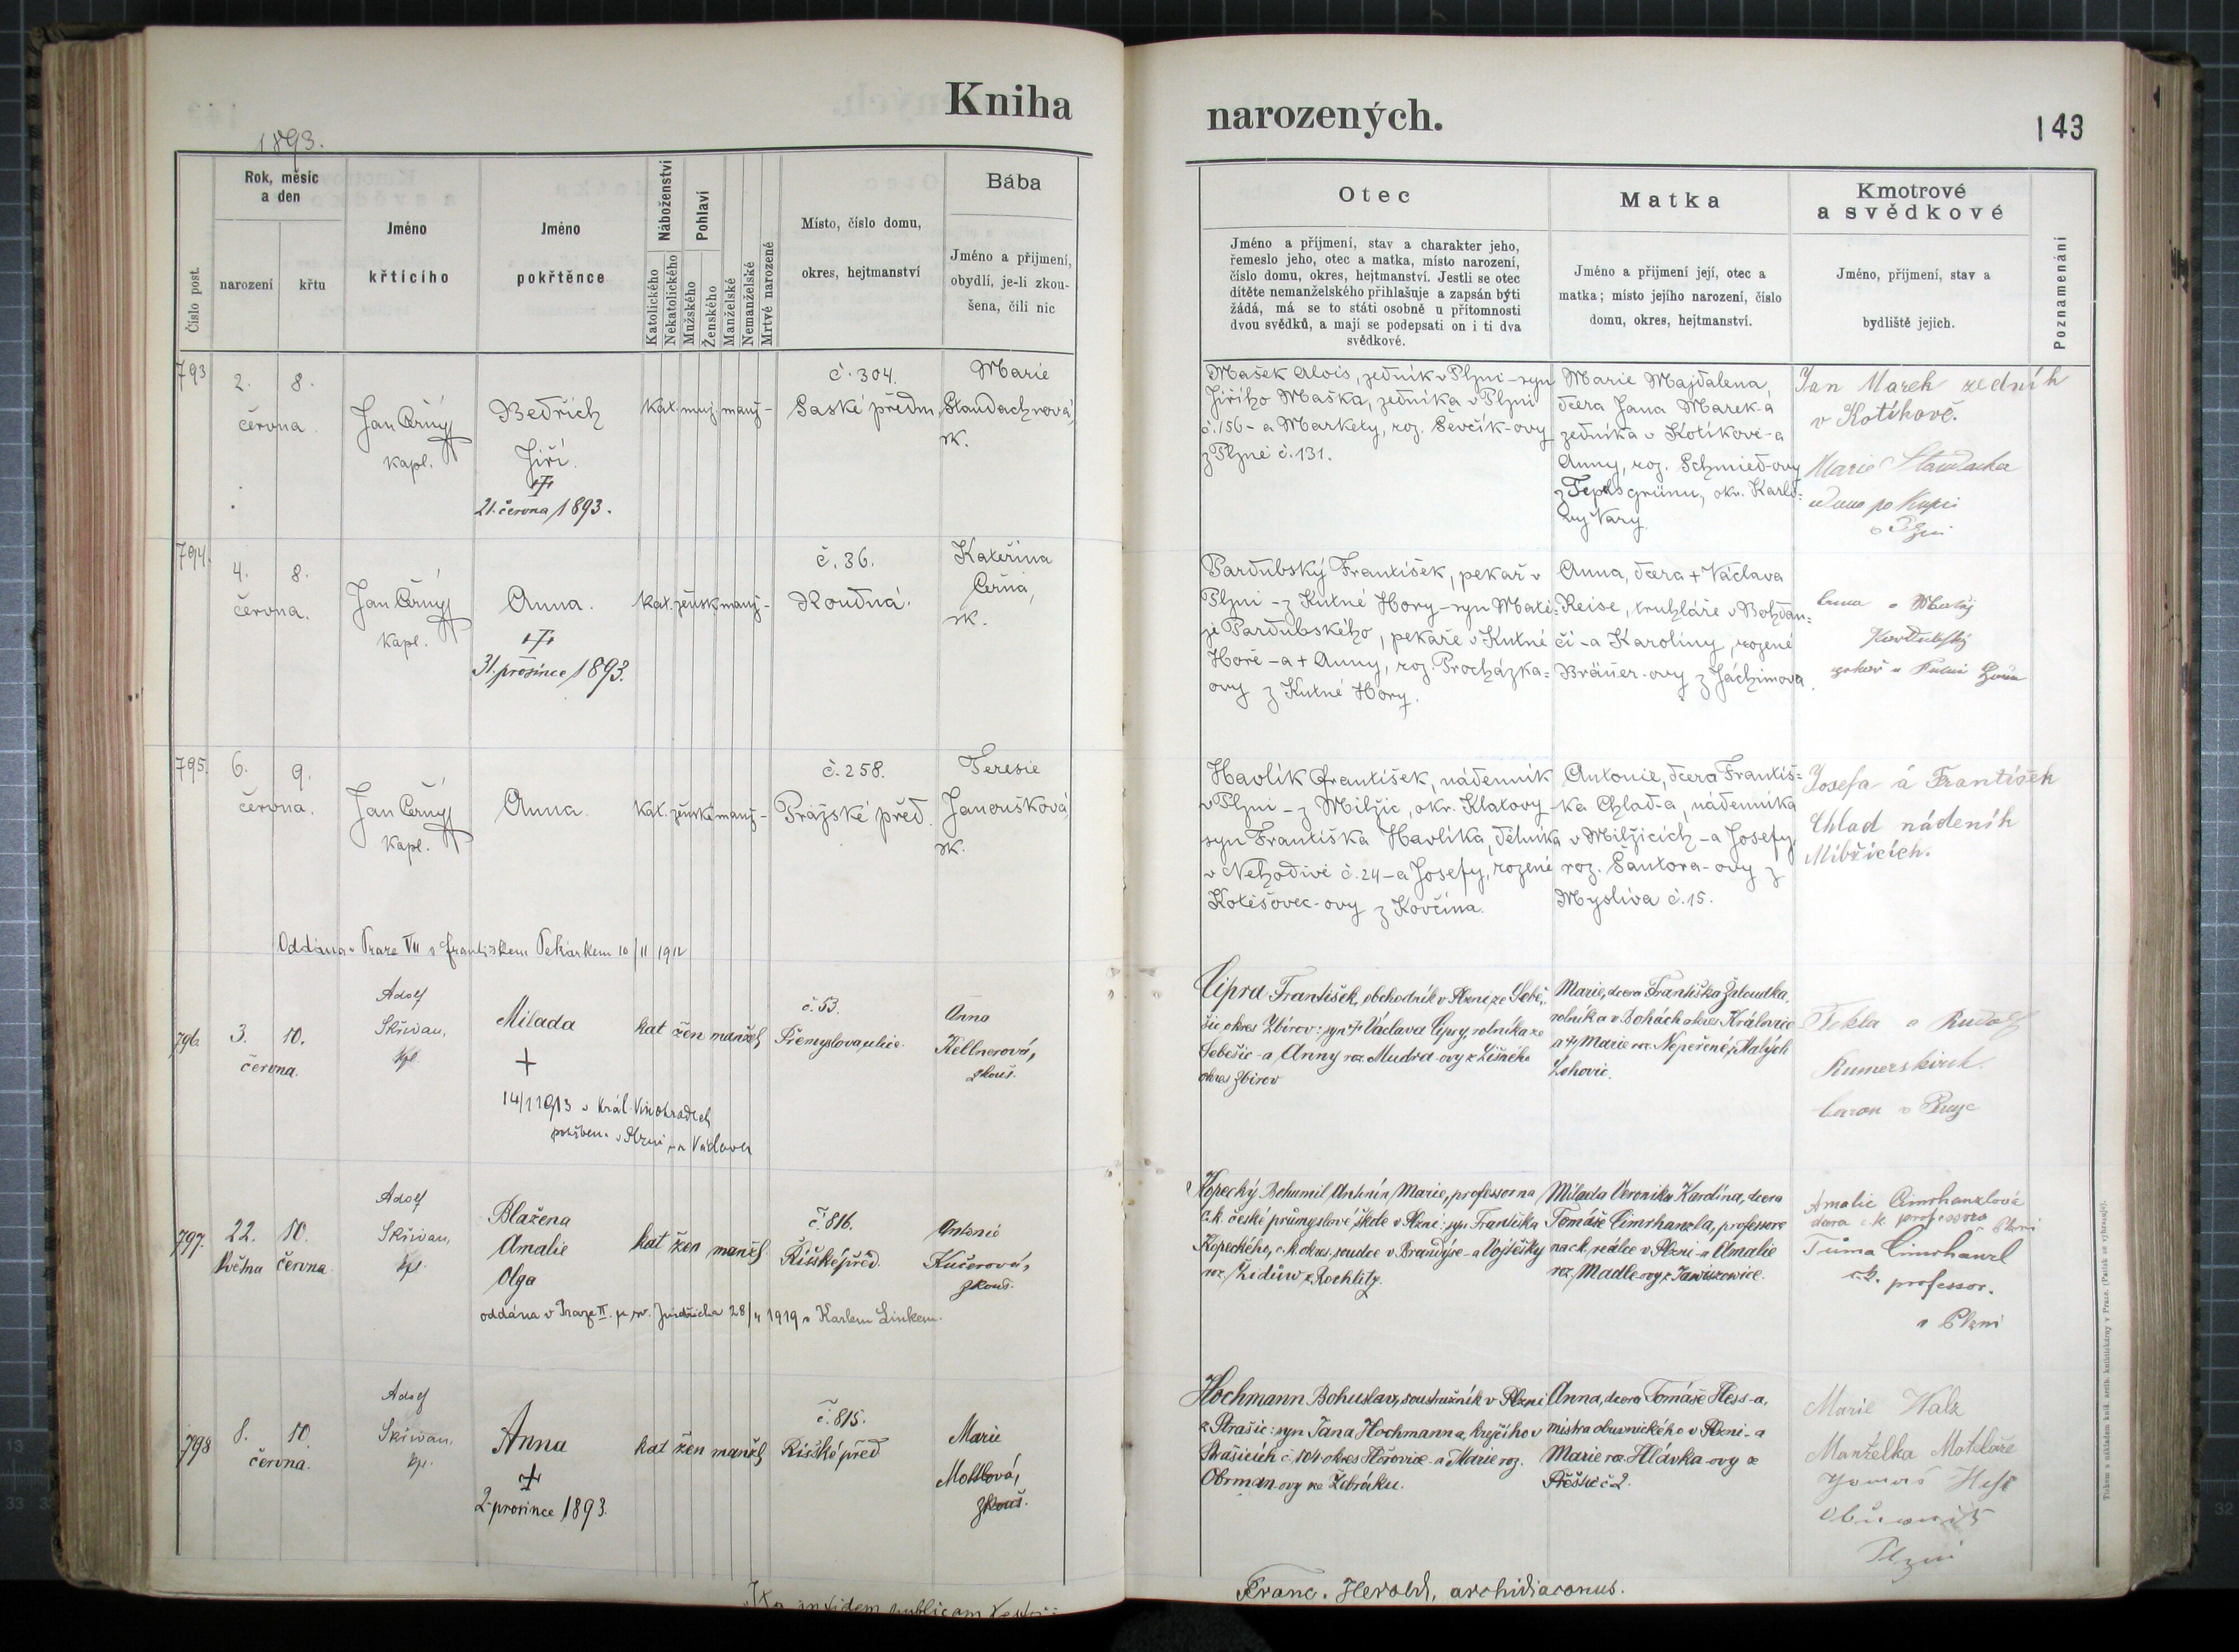 Kniha
1893.
Číslo post.
Rok, měsíc
a den
narození
křtu
Jméno
křtícího
Jméno
pokřtěnce
Náboženství
Katolického
Nekatolického
Pohlaví
Mužského
Ženského
Manželské
Nemanželské
Mrtvě narozené
Místo, číslo domu,
okres, hejtmanství
Bába
Jméno a přijmení,
obydlí, je-li zkou-
šena, čili nic
793
2.
8.
června.
Jan Černý
kapl.
Bedřich
Jiří.
21. června 1893.
kat. muž. manž-
č. 304.
Saské předm.
Marie
Staudachrová,
zk.
794.
4.
8.
června.
Jan Černý
kapl.
Anna.
31. prosince 1893.
kat. žensk. manž-
č. 36.
Roudná.
Kateřina
Černá,
zk.
795.
6.
9.
června.
Jan Černý
kapl.
Anna.
kat. ženské manž-
č. 258.
Pražské před.
Teresie
Janoušková,
zk.
Oddána v Praze VII s Františkem Pekárkem 10/II 1912
796.
3.
10.
června.
Adolf
Skřivan,
kpl.
Milada
+
14/1 1913 v Král. Vinohradech
pohřbena v Plzni u sv. Václava
kat žen manžel
č. 53.
Přemyslova ulice.
Anna
Kellnerová,
zkouš.
797.
22.
10.
května
června.
Adolf
Skřivan,
kpl.
Blažena
Amalie
Olga
oddána v Praze II. u sv. Jindřicha 28/4 1919 s Karlem Linkem.
kat žen manžel
č. 816.
Říšské před.
Antonie
Kučerová,
zkouš.
798
8.
10.
června.
Adolf
Skřivan,
kpl.
Anna
+
2. prosince 1893.
kat žen manžel
č. 815.
Říšské před
Marie
Mottlová,
zkouš.
narozených.
143
Otec
Jméno a příjmení, stav a charakter jeho,
řemeslo jeho, otec a matka, místo narození,
číslo domu, okres, hejtmanství. Jestli se otec
dítěte nemanželského přihlašuje a zapsán býti
žádá, má se to státi osobně u přítomnosti
dvou svědků, a mají se podepsati on i ti dva
svědkové.
Matka
Jméno a přijmení její, otec a
matka; místo jejího narození, číslo
domu, okres, hejtmanství.
Kmotrové
a svědkové
Jméno, příjmení, stav a
bydliště jejich.
Poznamenání
Mašek Alois, zedník v Plzni - syn
Jiřího Maška, zedníka v Plzni
č. 156 - a Markety, roz. Ševčík-ovy
z Plzně č. 131.
Marie Majdalena,
dcera Jana Marek-a
zedníka v Kotíkově - a
Anny, roz. Schmied-ovy
z Teplsgrünu, okr. Karlo-
vy Vary.
Jan Marek zedník
v Kotíkově.
Marie Staudacher
vdova po Kupci
v Plzni
Pardubský František, pekař v
Plzni - z Kutné Hory - syn Matě-
je Pardubského, pekaře v Kutné
Hoře - a + Anny, roz. Procházka-
ovy z Kutné Hory.
Anna, dcera + Václava
Reise, truhláře v Bohdan-
či - a Karolíny, rozené
Bräuer-ovy z Jáchimova.
Anna a Matěj
Pardubský
Havlík František, nádenník
v Plzni - z Milžic, okr. Klatovy
syn Františka Havlíka, dělníka
v Nehodivi č. 24 - a Josefy, rozené
Kotěšovec-ovy z Kovčína.
Antonie, dcera Františ-
ka Chlad-a, nádenníka
v Milžicích - a Josefy,
roz. Santora-ovy z
Myslíva č. 15.
Josefa a František
Chlad nádeník
Milžicích.
Cipra František, obchodník v Plzni ze Sebe-
šic okres Zbirov: syn + Václava Cipry, rolníka ze
Sebešic - a Anny roz. Mudra-ovy z Líšného
okres Zbirov
Marie, dcera Františka Žaloudka,
rolníka v Bohách okres Kralovice
a + Marie roz. Nepeřené z Malých
Lohovic.
Tekla a Rudolf
Rumerskirch
baron v Praze
Kopecký Bohumil Antonín Marie, professor na
c.k. české průmyslové škole v Plzni: syn Františka
Kopeckého, c.k. okres. soudce v Brandýse - a Vojtěšky
roz. Zidův z Rochlitz.
Milada Veronika Kardina, dcera
Tomáše Cimrhanzla, professora
na c.k. reálce v Plzni - a Amalie
roz. Madle-ovy z Jawiszowice.
Amalie Cimrhanzlová
dcera c.k. professora Plzni
Tůma Cimrhanzl
c.k. professor.
v Plzni
Hochmann Bohuslav, soustružník v Plzni
z Strašic: syn Jana Hochmanna, krejčího v
Strašicích č. 104 okres Hořovice - a Marie roz.
Obrman-ovy ze Žebráku.
Anna, dcera Tomáše Hess-a,
mistra obuvnického v Plzni - a
Marie roz. Hlávka-ovy z
Přeštic č 2.
Marie Walz
Manželka
Tomáš Hess
Obuvník
Plzni
Franc. Herold, archidiaconus.
Tiskem a nákladem knih. arcib. knihtiskárny v Praze. (Patisk se vyhrazuje).